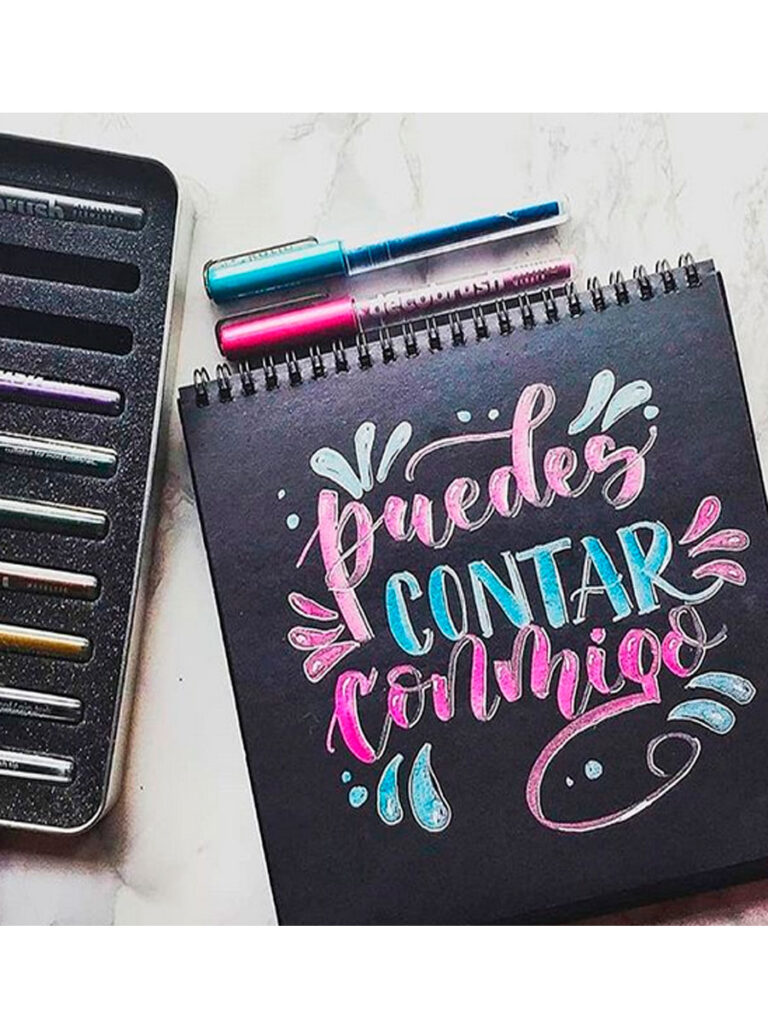 brush
decobrush
puedes
CONTAR
conmigo